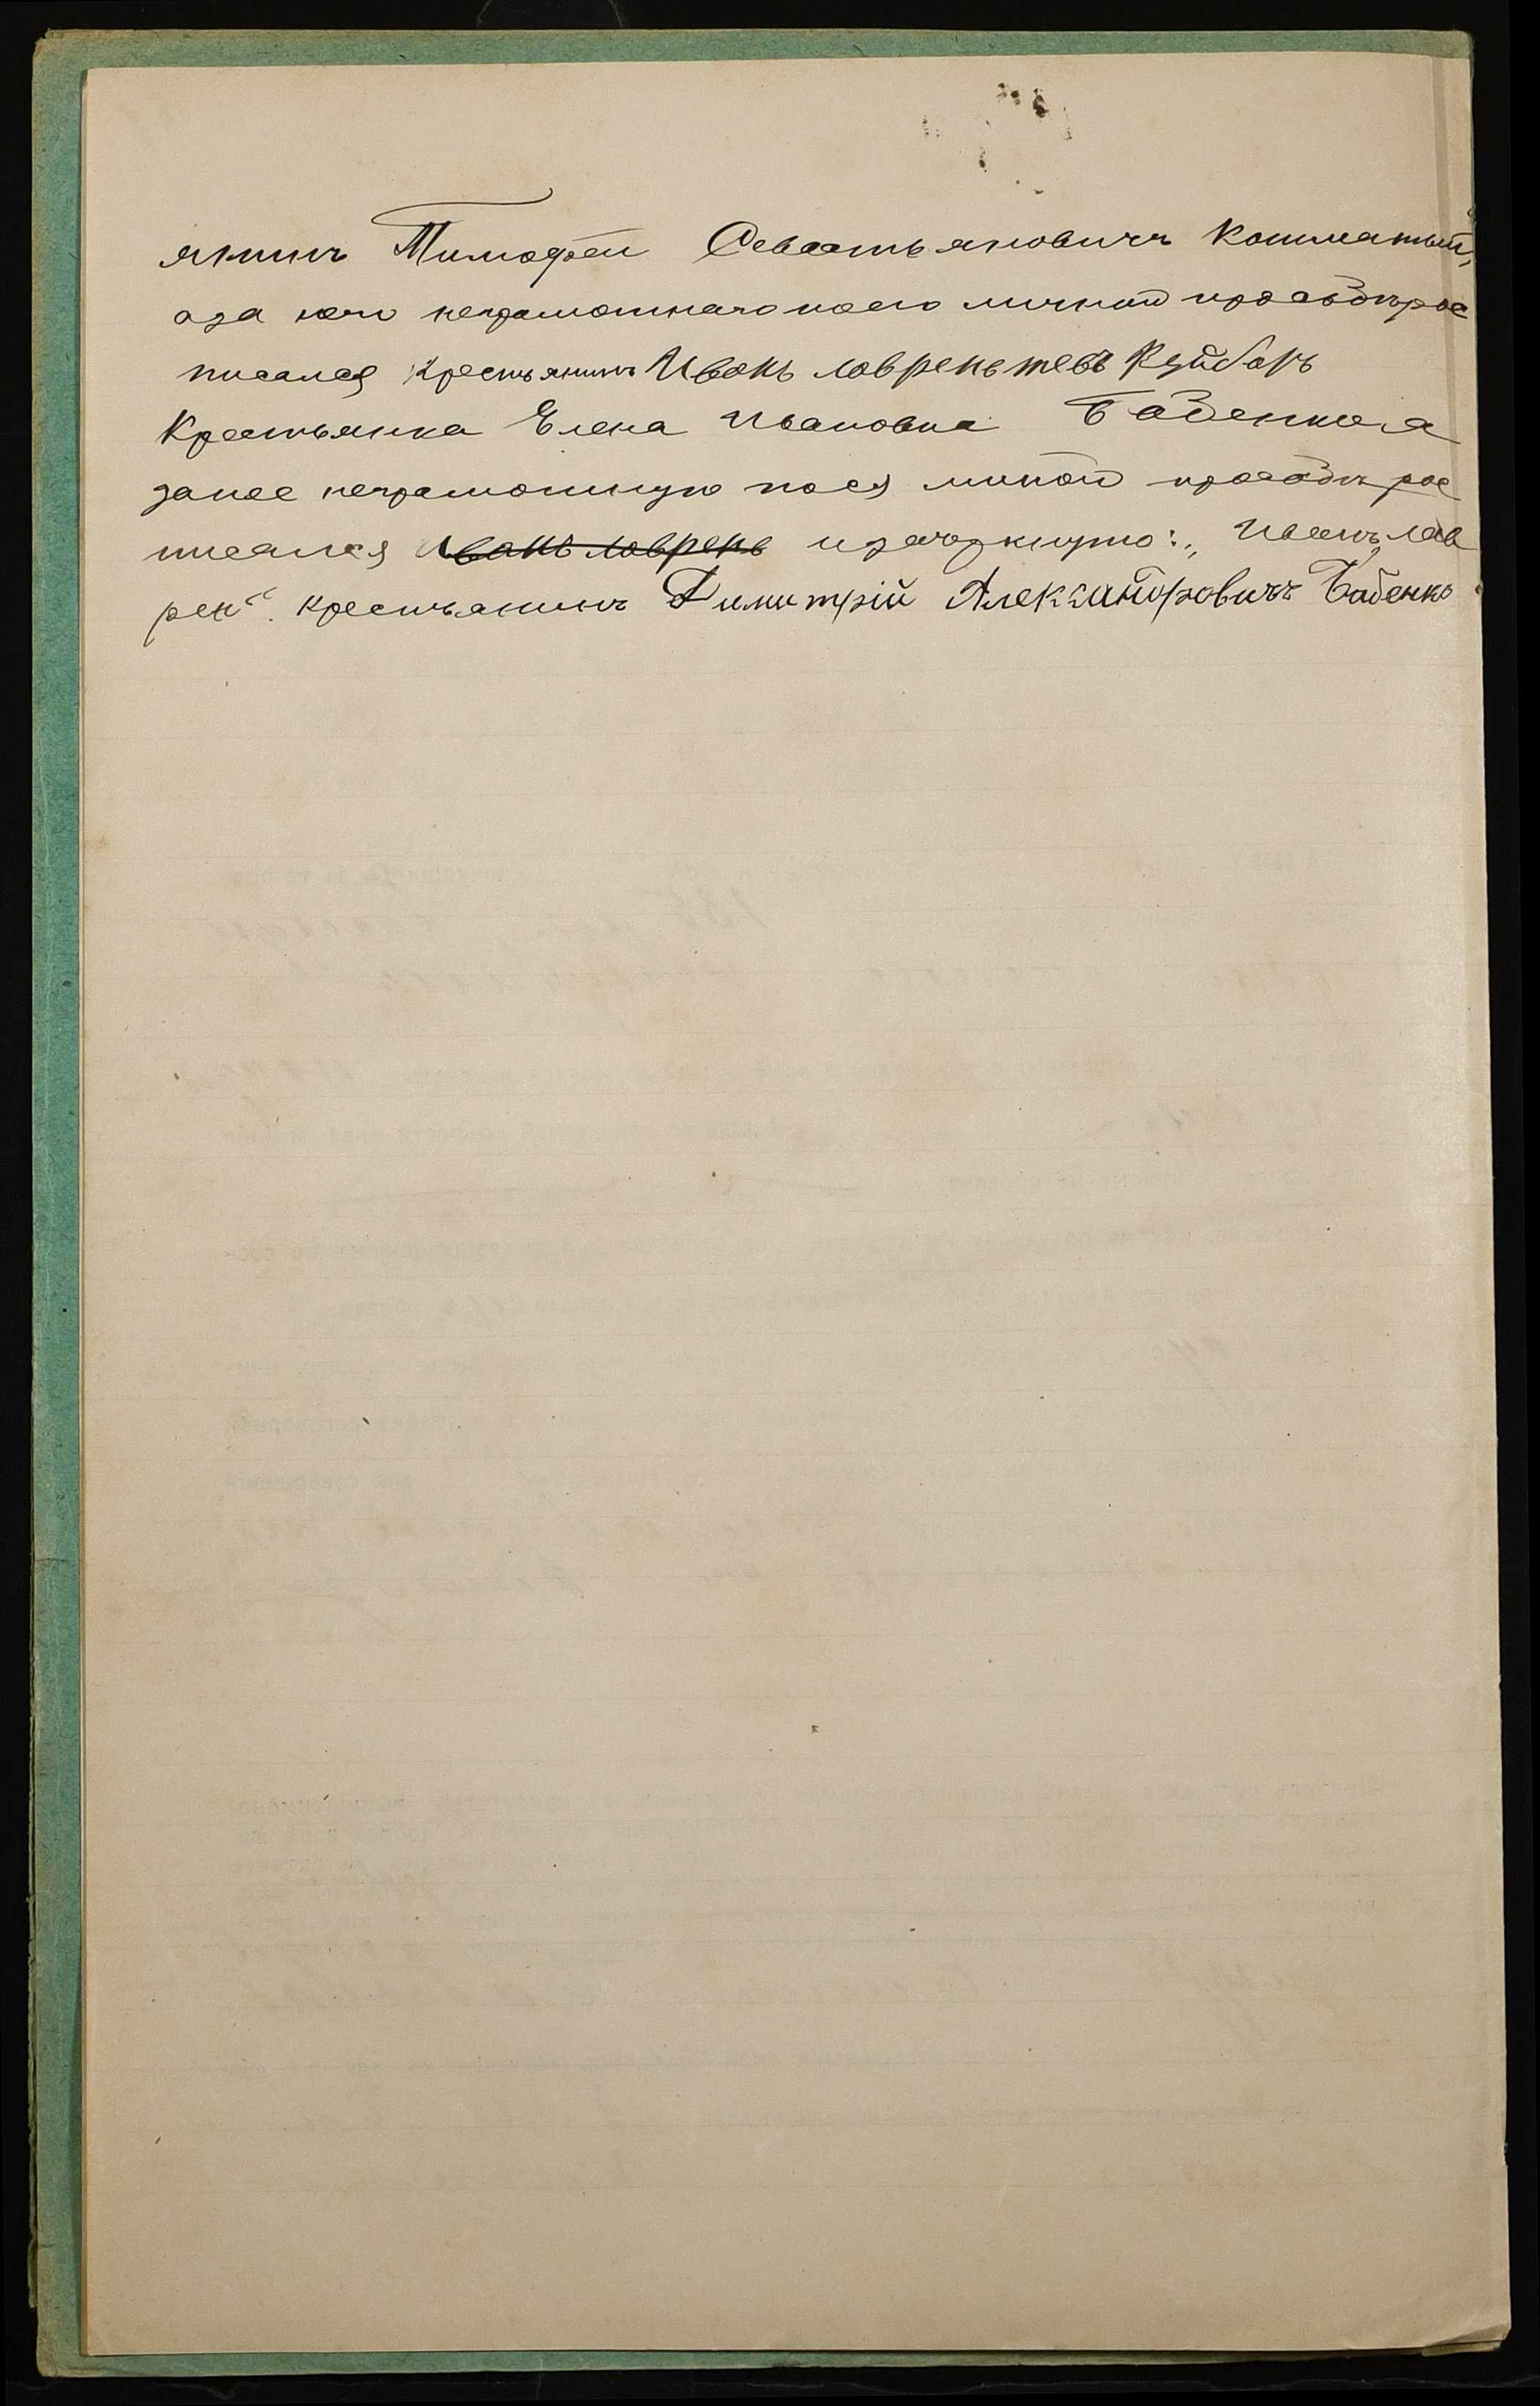 янинъ Тимофей Севастьяновичъ Кошматый,
а за него неграмотнаго по его личной просьбѣ рос
писался крестьянинъ Иванъ Лаврентьевъ
Крестьянка Елена Ивановна Бабенкова
за нее неграмотную по ея личной просьбѣ рос
писался Иванъ Лаврень изачеркнуто: „Иванъ Лав
рен“. крестьянинъ Димитрій Александровичъ Бабенко